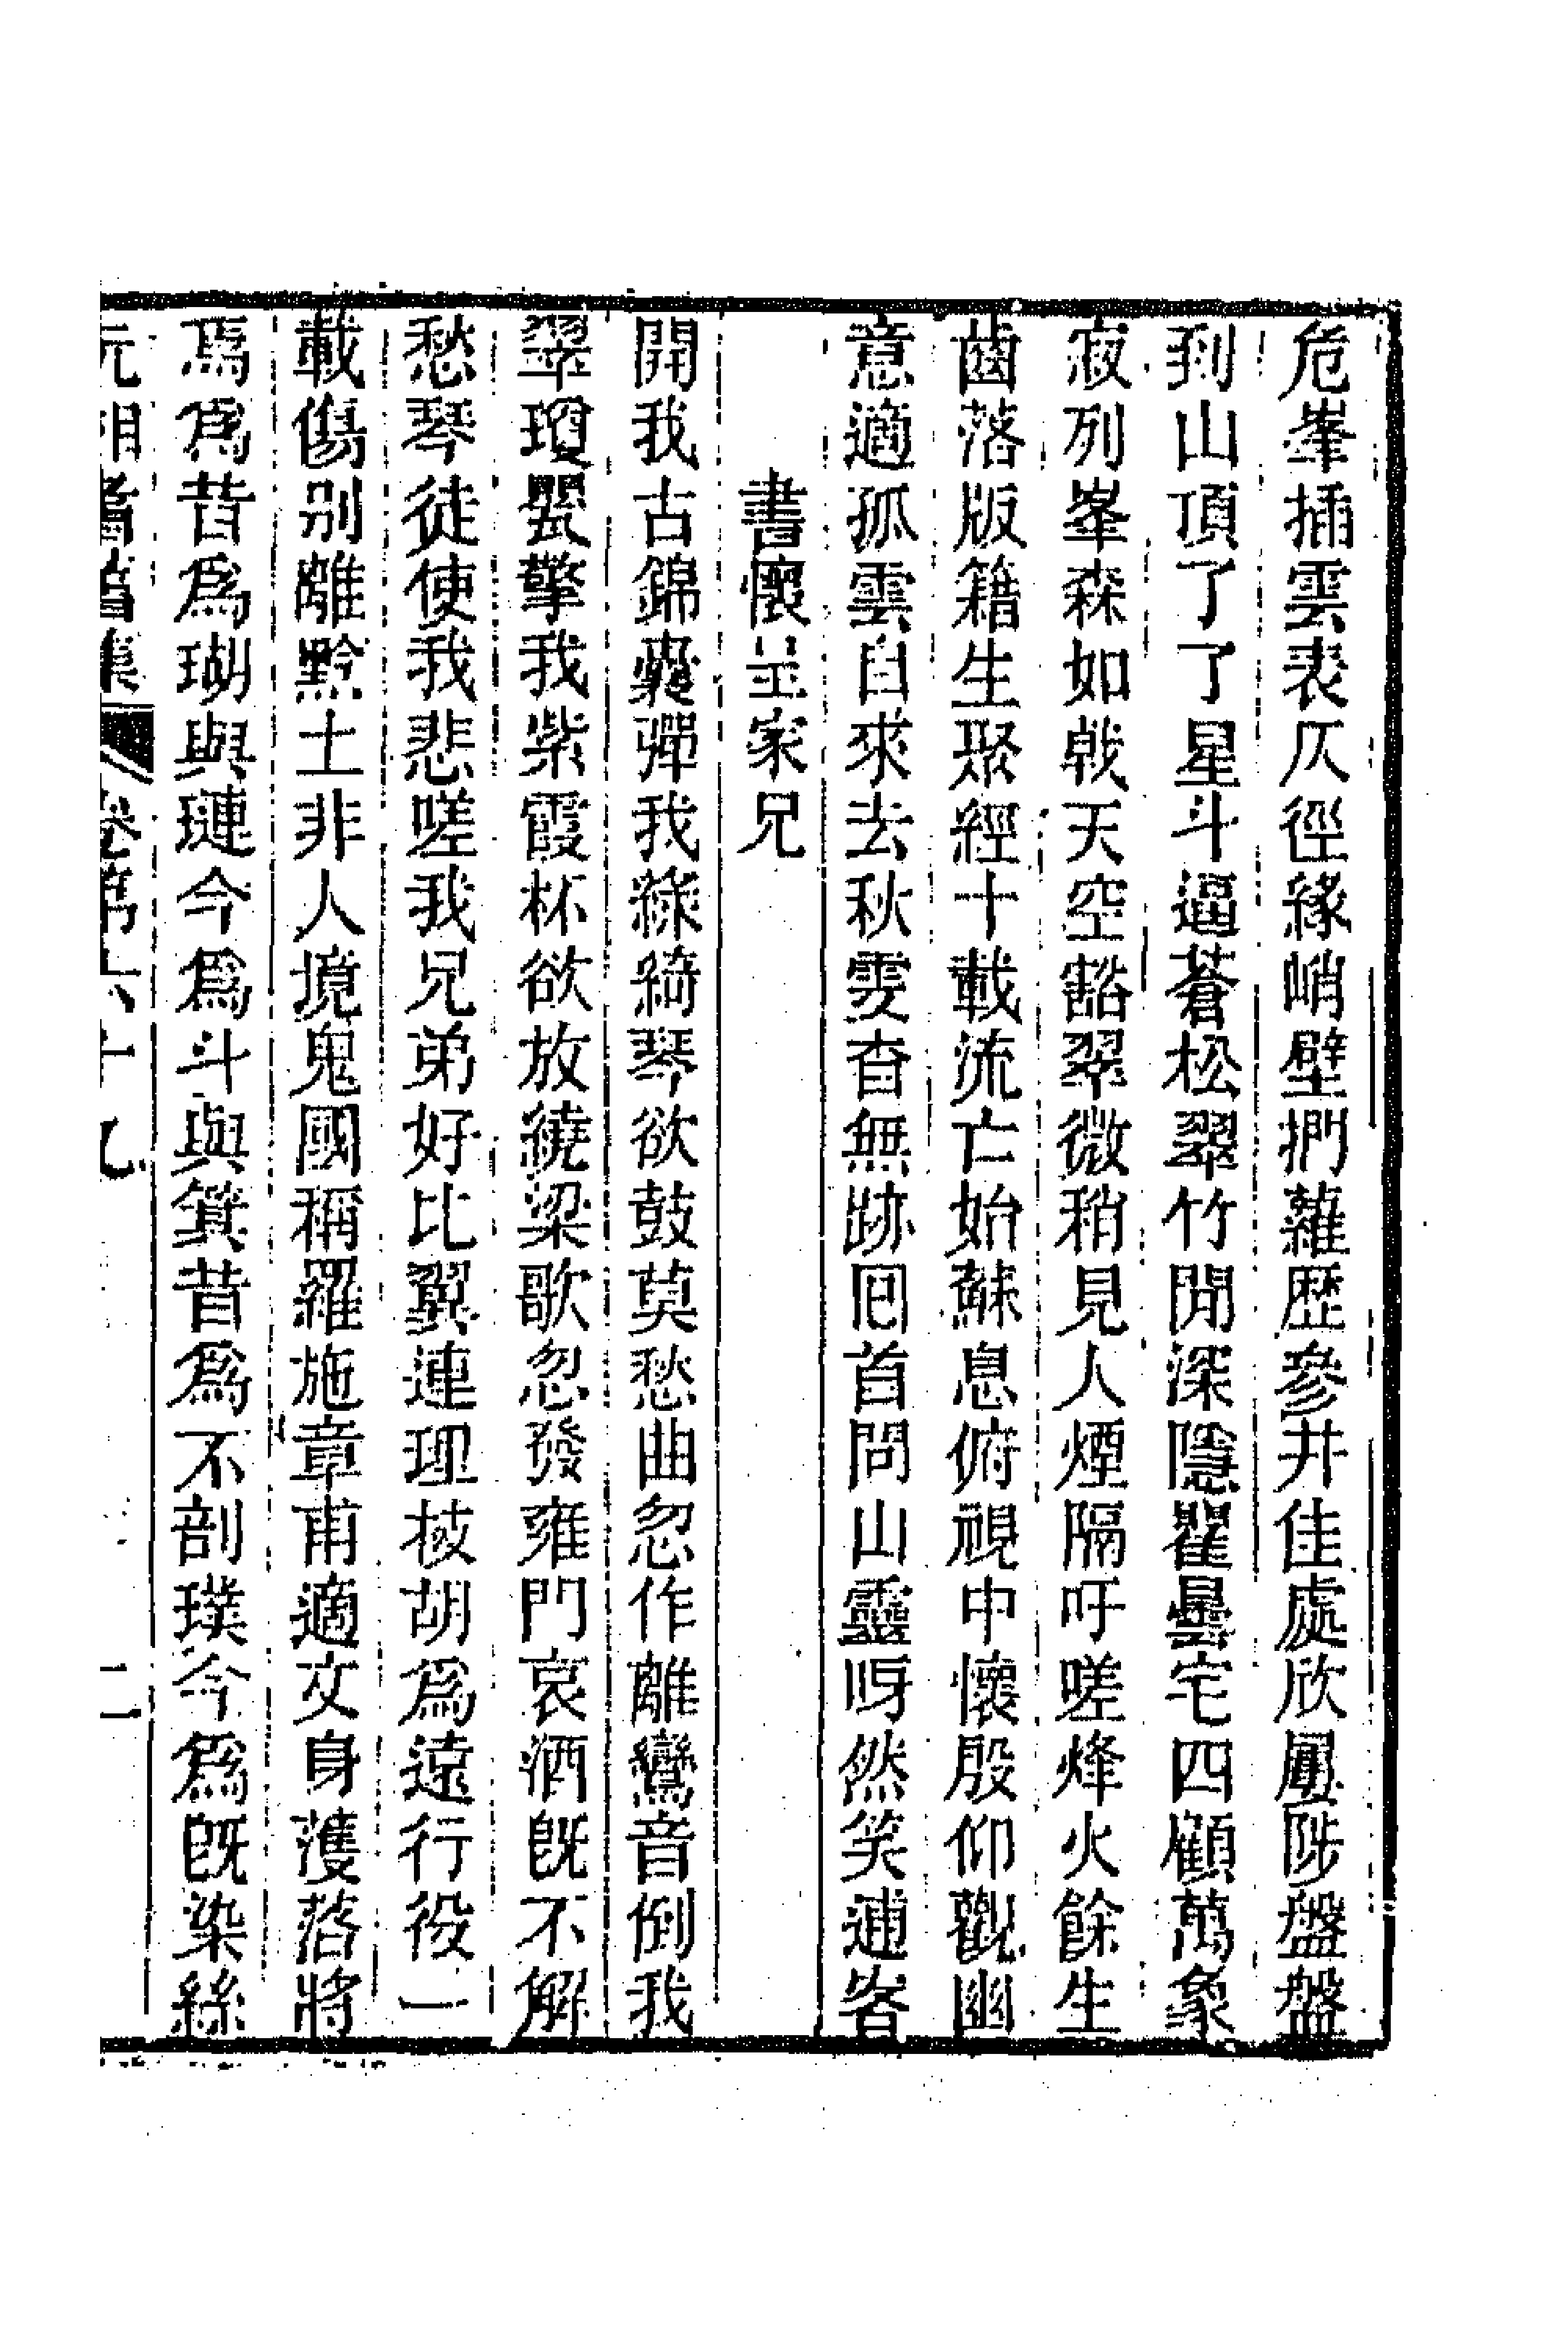 危峯插雲表仄徑緣峭壁捫蘿歷參井佳處欣屢陟盤盤
到山頂了了星斗逼蒼松翠竹閒深隱瞿曇宅四顧萬象
寂列峯森如戟天空豁翠微稍見人煙隔吁嗟烽火餘生
齒落版籍生聚經十載流亡始蘇息俯視中懷殷仰觀幽
意適孤雲自來去秋雯杳無跡囘首問山靈呀然笑逋客
書懷呈家兄
開我古錦囊彈我綠綺琴欲鼓莫愁曲忽作離鸞音倒我
翠瓊甖擎我紫霞杯欲放繞梁歌忽發雍門哀酒旣不解
愁琴徒使我悲嗟我兄弟好比翼連理枝胡爲遠行役一
載傷别離黔土非人境鬼國稱羅施章甫適文身濩落將
焉爲昔爲瑚與璉今爲斗與箕昔爲不剖璞今爲旣染絲
沅湘耆舊集 卷第六十九 二